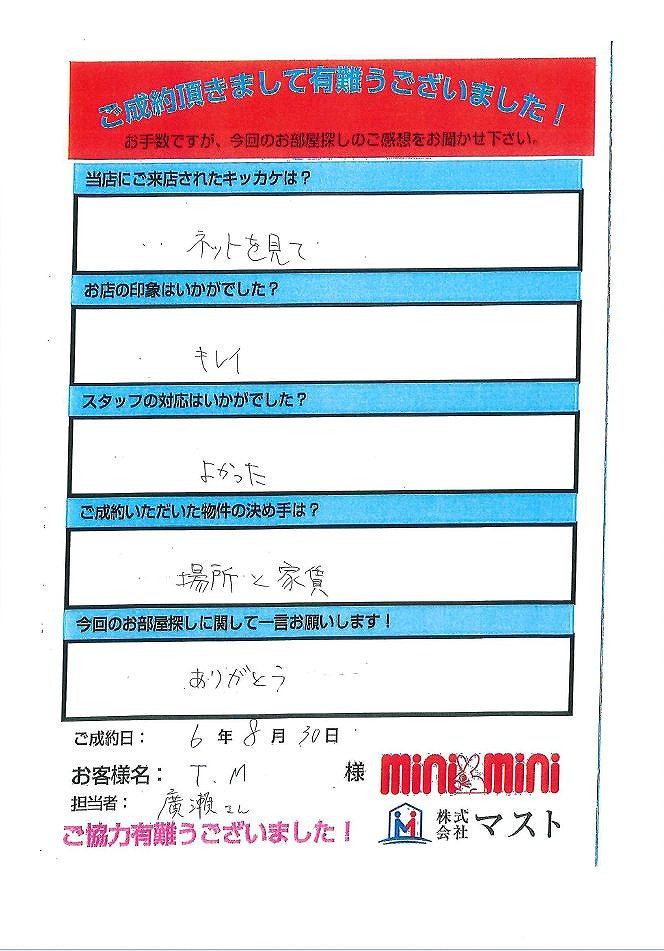 ご成約頂きまして有難うございました！
お手数ですが、今回のお部屋探しのご感想をお聞かせ下さい。
当店にご来店されたキッカケは？
ネットを見て
お店の印象はいかがでした？
キレイ
スタッフの対応はいかがでした？
よかった
ご成約いただいた物件の決め手は？
場所と家賃
今回のお部屋探しに関して一言お願いします！
ありがとう
ご成約日： 6 年 8 月 30 日
お客様名： T.M 様
担当者： 廣瀬さん
mini mini
ご協力有難うございました！
株式会社 マスト